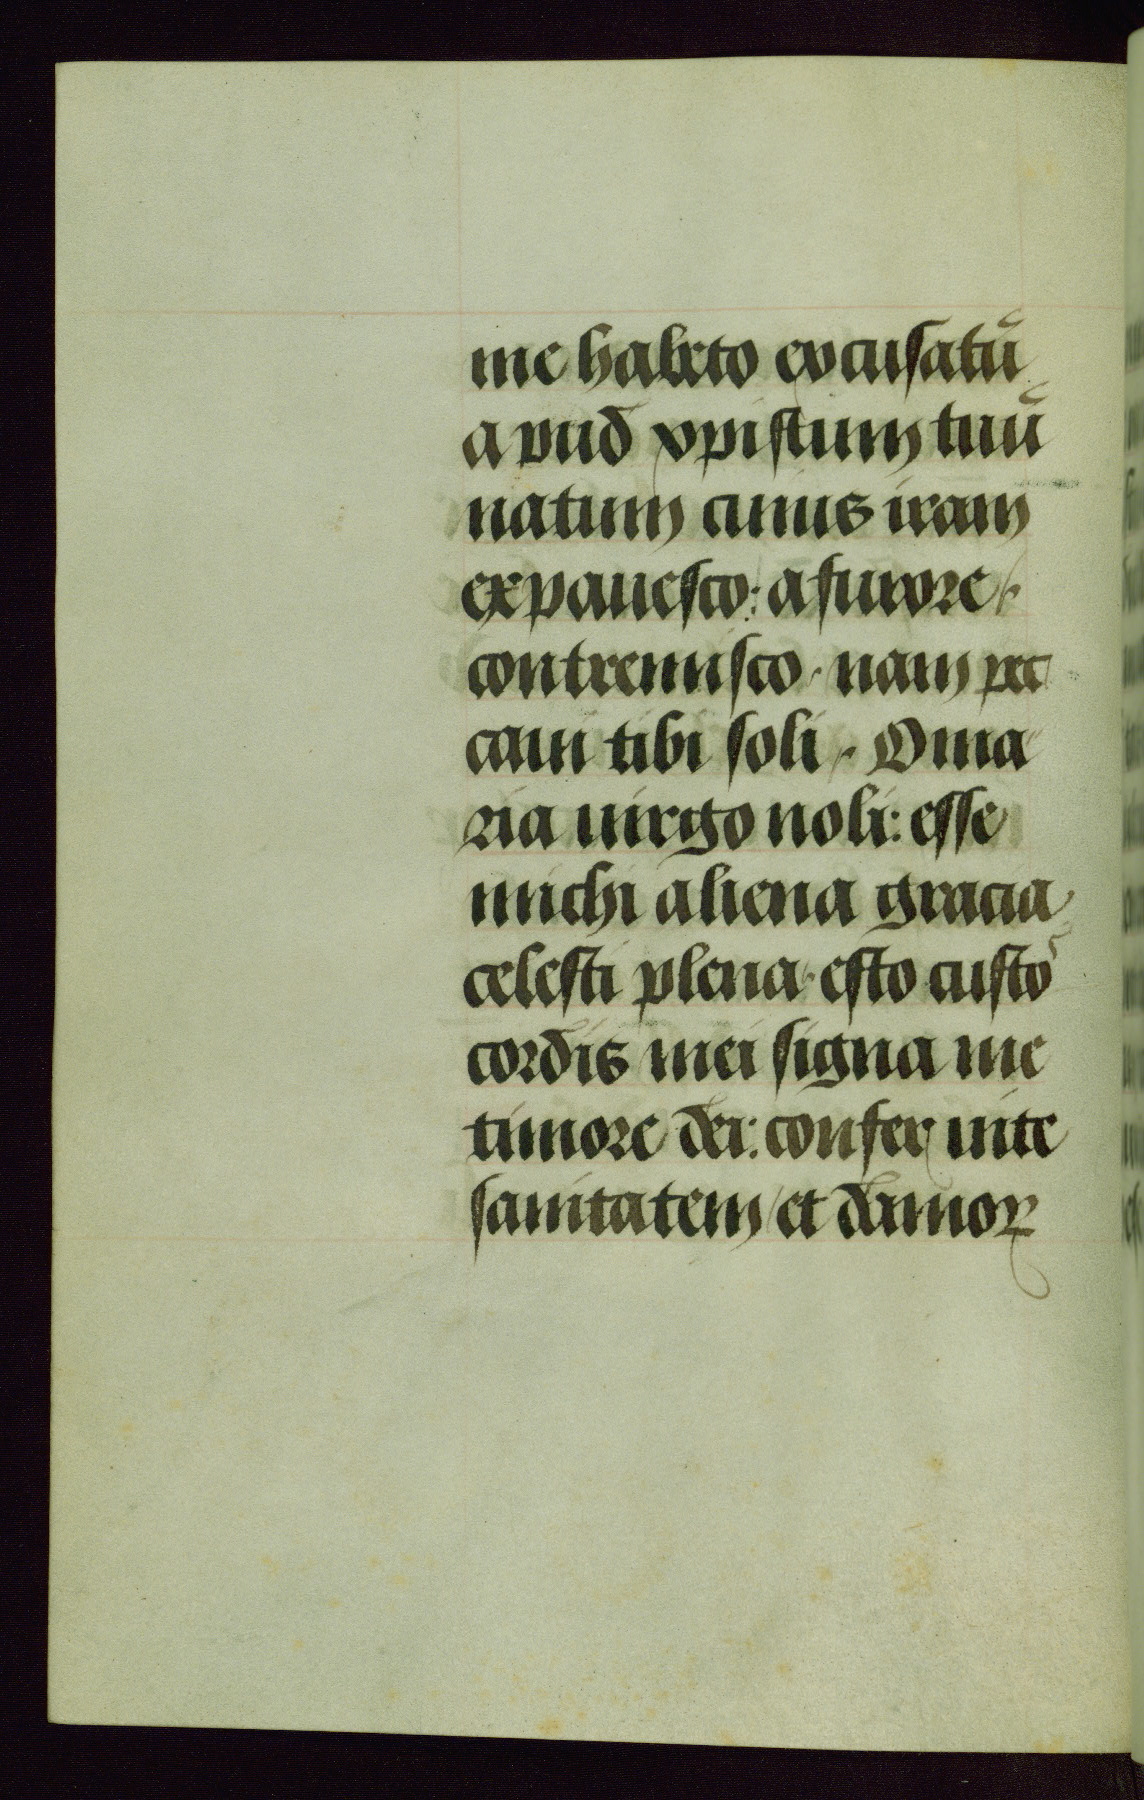 me habeto excusatū
apud xpistum tuū
natum cuius iram
expauesco: a furore
contremisco. nam pec
caui tibi soli. O ma
ria uirgo noli: esse
michi aliena gracia
celesti plena. esto custo
cordis mei signa me
timore dei: confer uite
sanitatem et da mor